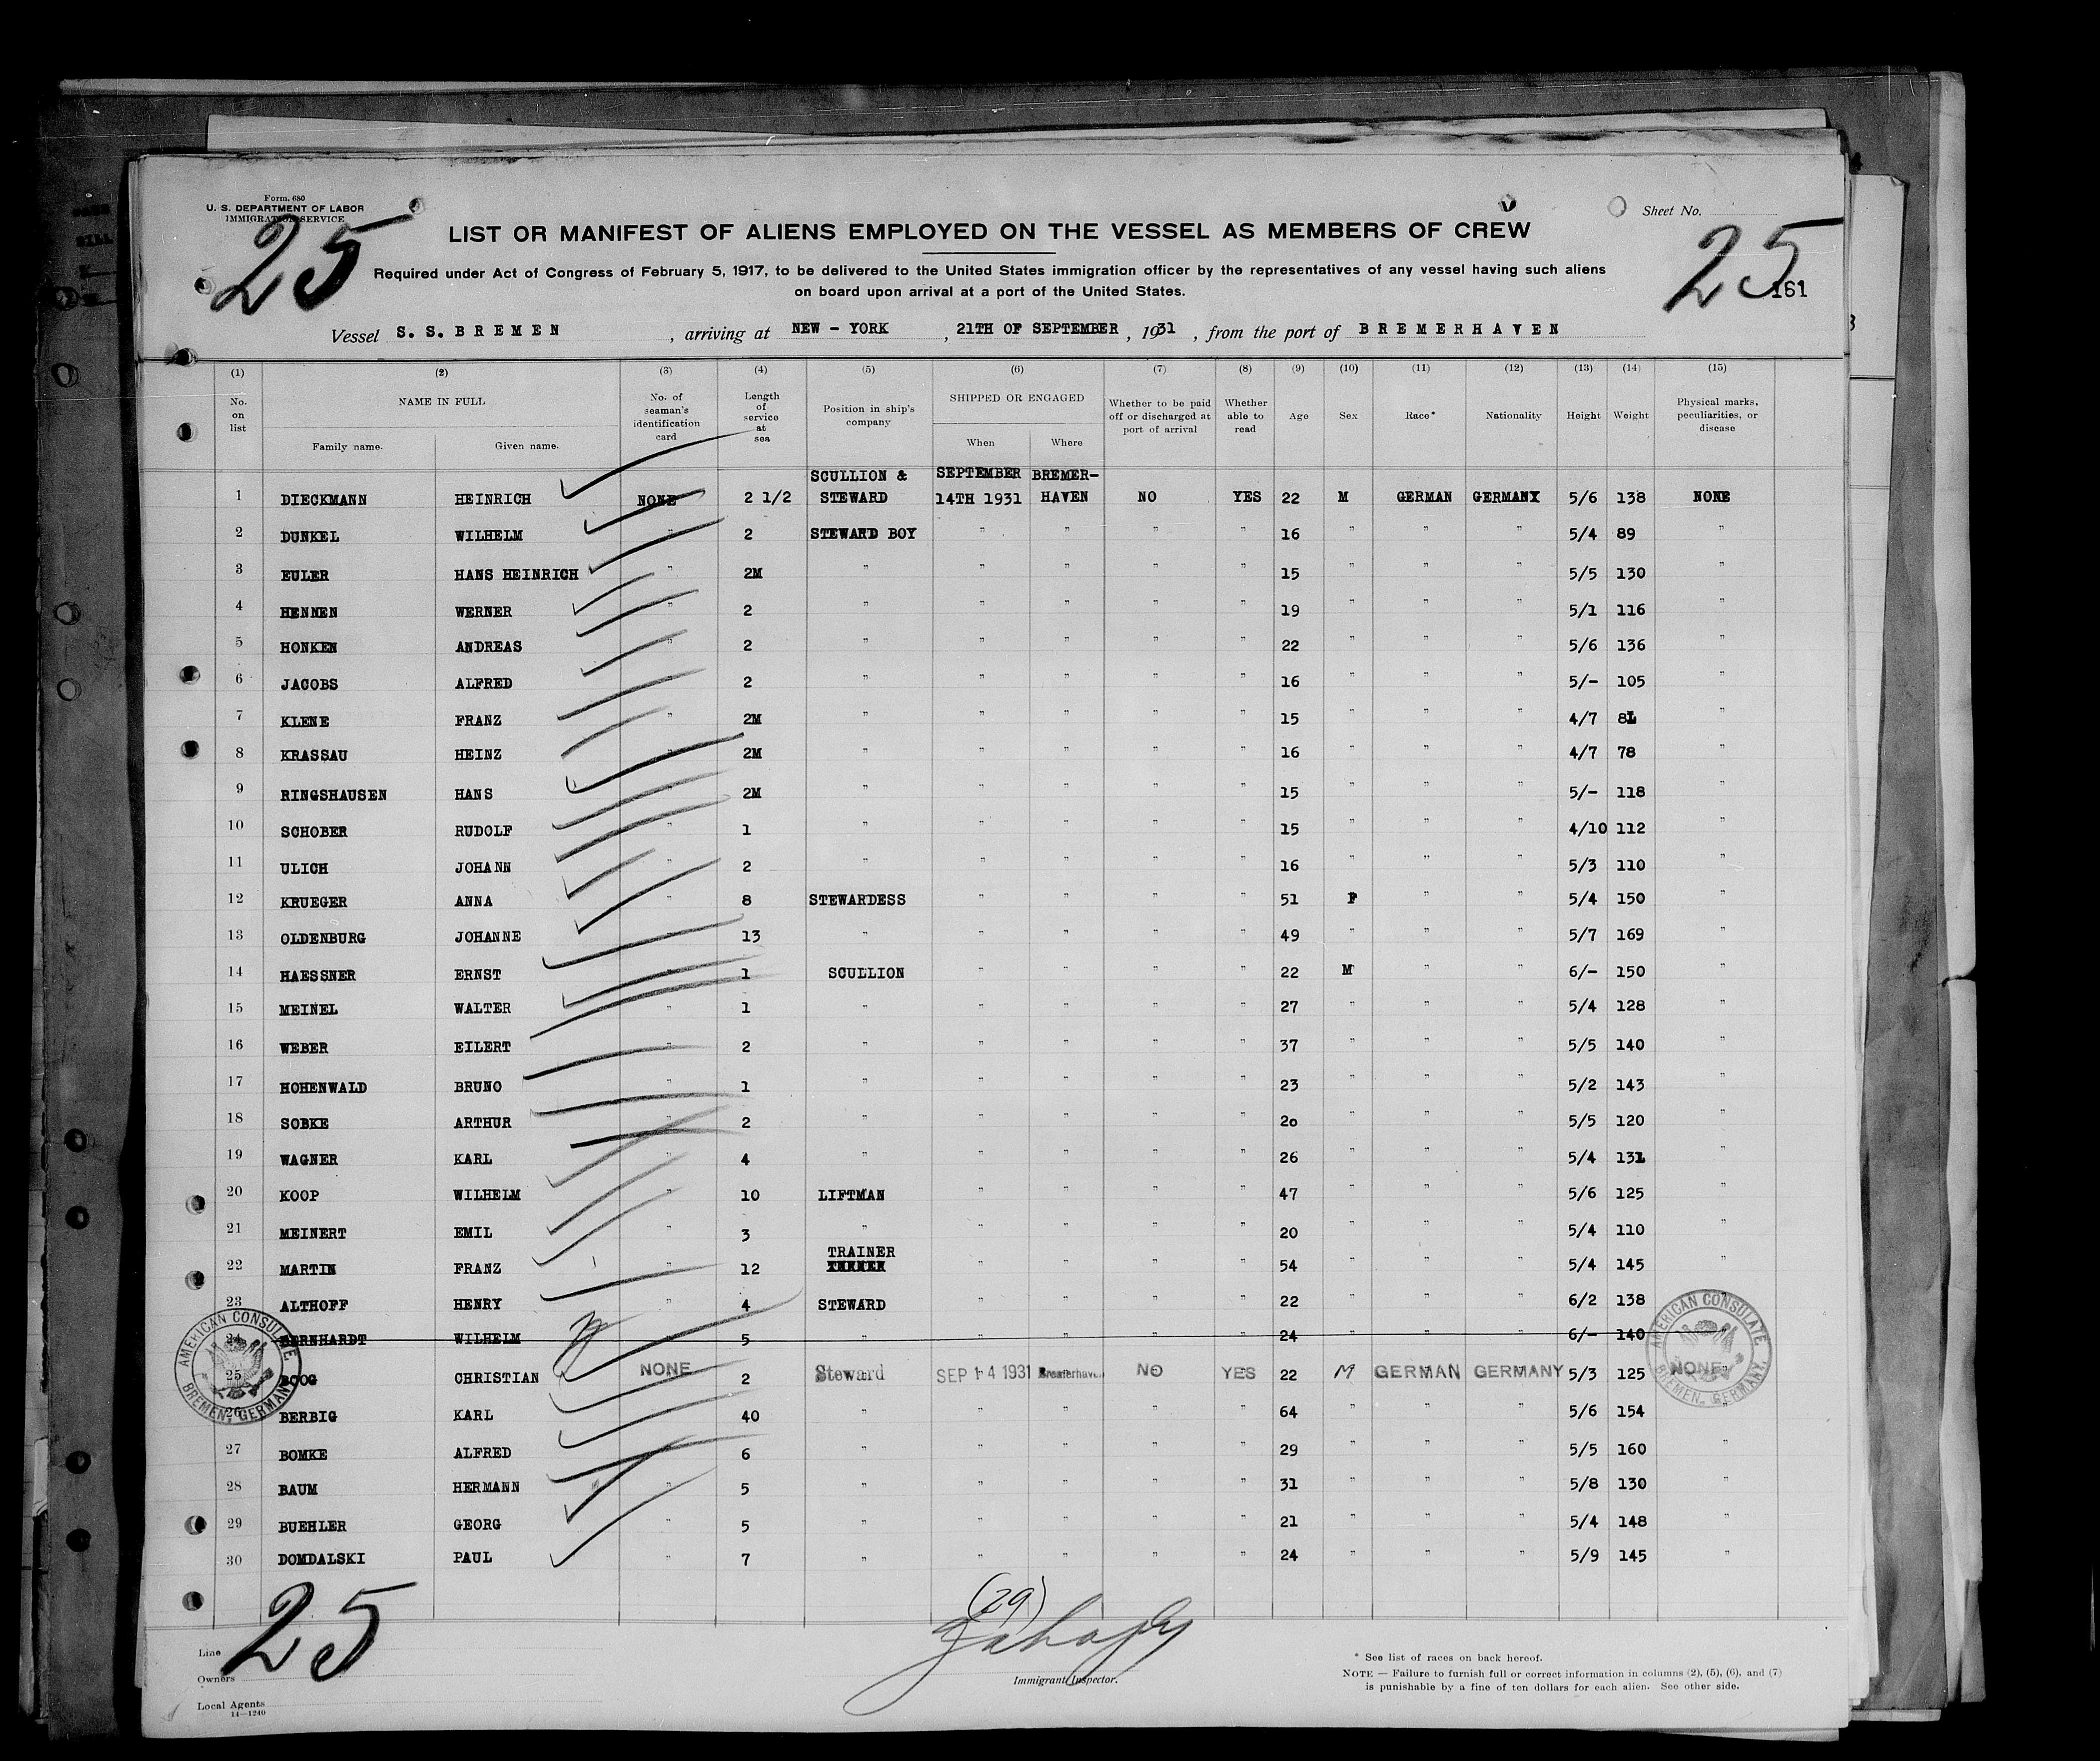 Form. 680
U. S. DEPARTMENT OF LABOR
IMMIGRATION SERVICE
25
Sheet No.
25
161
LIST OR MANIFEST OF ALIENS EMPLOYED ON THE VESSEL AS MEMBERS OF CREW
Required under Act of Congress of February 5, 1917, to be delivered to the United States immigration officer by the representatives of any vessel having such aliens
on board upon arrival at a port of the United States.
Vessel S. S. BREMEN , arriving at NEW - YORK , 21TH OF SEPTEMBER , 1931 , from the port of BREMERHAVEN
(1) (2) (3) (4) (5) (6) (7) (8) (9) (10) (11) (12) (13) (14) (15)
No. on list NAME IN FULL Family name. Given name. No. of seaman's identification card Length of service at sea Position in ship's company SHIPPED OR ENGAGED When Where Whether to be paid off or discharged at port of arrival Whether able to read Age Sex Race* Nationality Height Weight Physical marks, peculiarities, or disease
1 DIECKMANN HEINRICH NONE 2 1/2 SCULLION & STEWARD SEPTEMBER 14TH 1931 BREMER-HAVEN NO YES 22 M GERMAN GERMANY 5/6 138 NONE
2 DUNKEL WILHELM " 2 STEWARD BOY " " " " 16 " " " 5/4 89 "
3 EULER HANS HEINRICH " 2M " " " " " 15 " " " 5/5 130 "
4 HENNEN WERNER " 2 " " " " " 19 " " " 5/1 116 "
5 HONKEN ANDREAS " 2 " " " " " 22 " " " 5/6 136 "
6 JACOBS ALFRED " 2 " " " " " 16 " " " 5/- 105 "
7 KLENE FRANZ " 2M " " " " " 15 " " " 4/7 81 "
8 KRASSAU HEINZ " 2M " " " " " 16 " " " 4/7 78 "
9 RINGSHAUSEN HANS " 2M " " " " " 15 " " " 5/- 118 "
10 SCHOBER RUDOLF " 1 " " " " " 15 " " " 4/10 112 "
11 ULICH JOHANN " 2 " " " " " 16 " " " 5/3 110 "
12 KRUEGER ANNA " 8 STEWARDESS " " " " 51 F " " 5/4 150 "
13 OLDENBURG JOHANNE " 13 " " " " " 49 " " " 5/7 169 "
14 HAESSNER ERNST " 1 SCULLION " " " " 22 M " " 6/- 150 "
15 MEINEL WALTER " 1 " " " " " 27 " " " 5/4 128 "
16 WEBER EILERT " 2 " " " " " 37 " " " 5/5 140 "
17 HOHENWALD BRUNO " 1 " " " " " 23 " " " 5/2 143 "
18 SOBKE ARTHUR " 2 " " " " " 2o " " " 5/5 120 "
19 WAGNER KARL " 4 " " " " " 26 " " " 5/4 131 "
20 KOOP WILHELM " 10 LIFTMAN " " " " 47 " " " 5/6 125 "
21 MEINERT EMIL " 3 " " " " " 20 " " " 5/4 110 "
22 MARTIN FRANZ " 12 TRAINER " " " " 54 " " " 5/4 145 "
23 ALTHOFF HENRY " 4 STEWARD " " " " 22 " " " 6/2 138 "
24 BERNHARDT WILHELM " 5 " " " " " 24 " " " 6/- 140
25 BOOG CHRISTIAN NONE 2 Steward SEP 14 1931 Bremerhaven NO YES 22 M GERMAN GERMANY 5/3 125 NONE
26 BERBIG KARL " 40 " " " " " 64 " " " 5/6 154 "
27 BOMKE ALFRED " 6 " " " " " 29 " " " 5/5 160 "
28 BAUM HERMANN " 5 " " " " " 31 " " " 5/8 130 "
29 BUEHLER GEORG " 5 " " " " " 21 " " " 5/4 148 "
30 DOMDALSKI PAUL " 7 " " " " " 24 " " " 5/9 145 "
AMERICAN CONSULATE BREMEN, GERMANY.
AMERICAN CONSULATE BREMEN, GERMANY.
25
(29)
Line
Owners
Local Agents
14—1240
Immigrant Inspector.
* See list of races on back hereof.
NOTE — Failure to furnish full or correct information in columns (2), (5), (6), and (7)
is punishable by a fine of ten dollars for each alien. See other side.